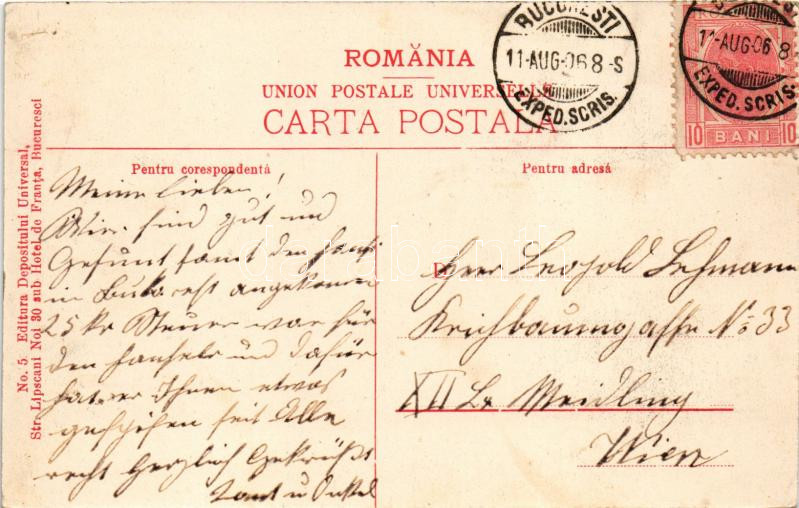 ROMÂNIA
UNION POSTALE UNIVERSELLE
CARTA POSTALA
BUCURESTI
11-AUG-06 8-S
EXPED. SCRIS.
11-AUG-06 8
EXPED. SCRIS.
10 BANI 10
Pentru corespondentă
Pentru adresă
No. 5 Editura Depositului Universal,
Str. Lipscani Noi 30 sub Hotel de Franţa, Bucuresci
Meine lieben!
Wir sind gut und
Gesunt samt den Hansi
in Bukarest angekomen
25 kr Steuer war für
den Hanserl und dafür
hat er Ihnen etwas
gespisen seit Alle
recht Herzlich Gekrüßt
Tant u Onkel
Herr Leopold Lehmann
Krichbaumgasse No 33
XII Bz Meidling
Wien
darabanth